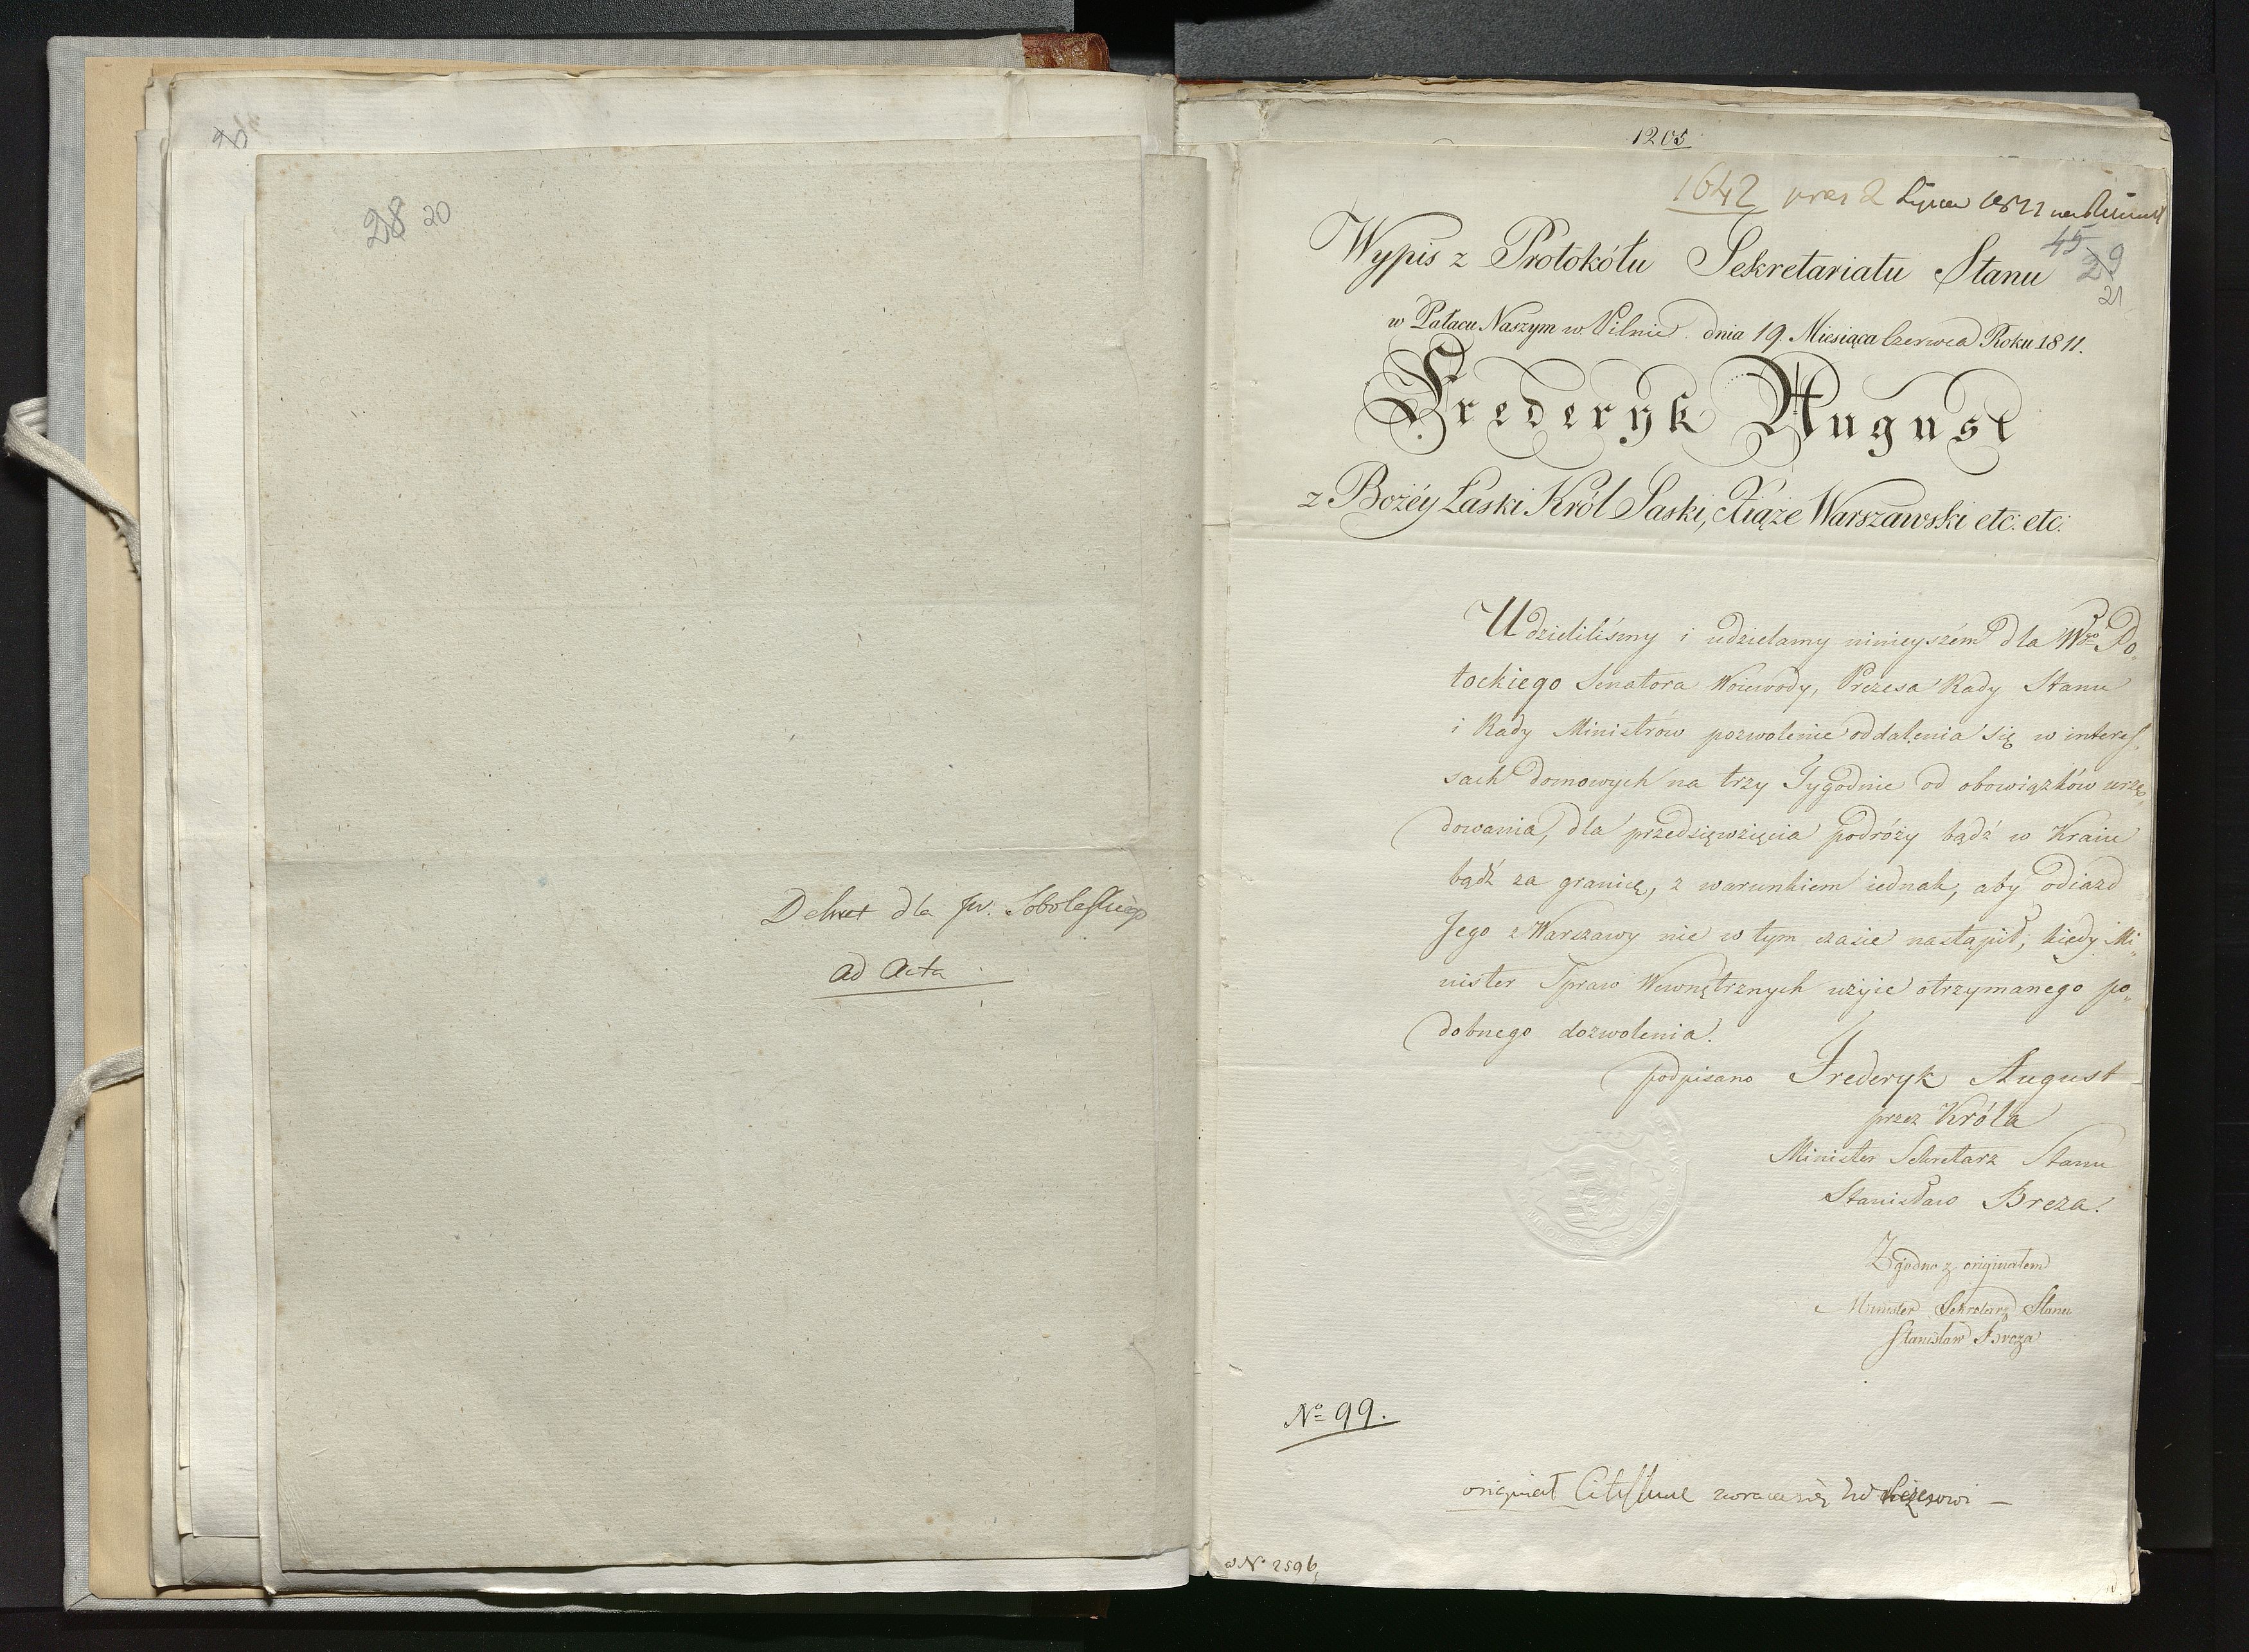 28 20
Dekret dla JW. Sobolewskiego
ad Acta
1205
1642 pres 2 Lipca 1811
45
29
21
Wypis z Protokółu Sekretariatu Stanu
w Pałacu Naszym w Pilnic dnia 19. Miesiąca Czerwca Roku 1811.
Frederyk August
z Bożéy Łaski Król Saski, Xiąże Warszawski etc: etc:
Udzieliliśmy i udzielamy ninieyszém dla Wgo Po„
tockiego Senatora Woiewody, Prezesa Rady Stanu
i Rady Ministrów pozwolenie oddalenia się w interes„
sach domowych na trzy Tygodnie od obowiązków urzę„
dowania, dla przedsięwzięcia podróży bądź w Kraiu
bądź za granicę, z warunkiem iednak, aby odiazd
Jego z Warszawy nie w tym czasie nastąpił, kiedy Mi„
nister Spraw Wewnętrznych użyie otrzymanego po„
dobnego dozwolenia.
podpisano Frederyk August
przez Króla
Minister Sekretarz Stanu
Stanisław Breza.
Zgodno z originałem
Minister Sekretarz Stanu
Stanisław Breza
No 99.
originał zwraca się
No 2596